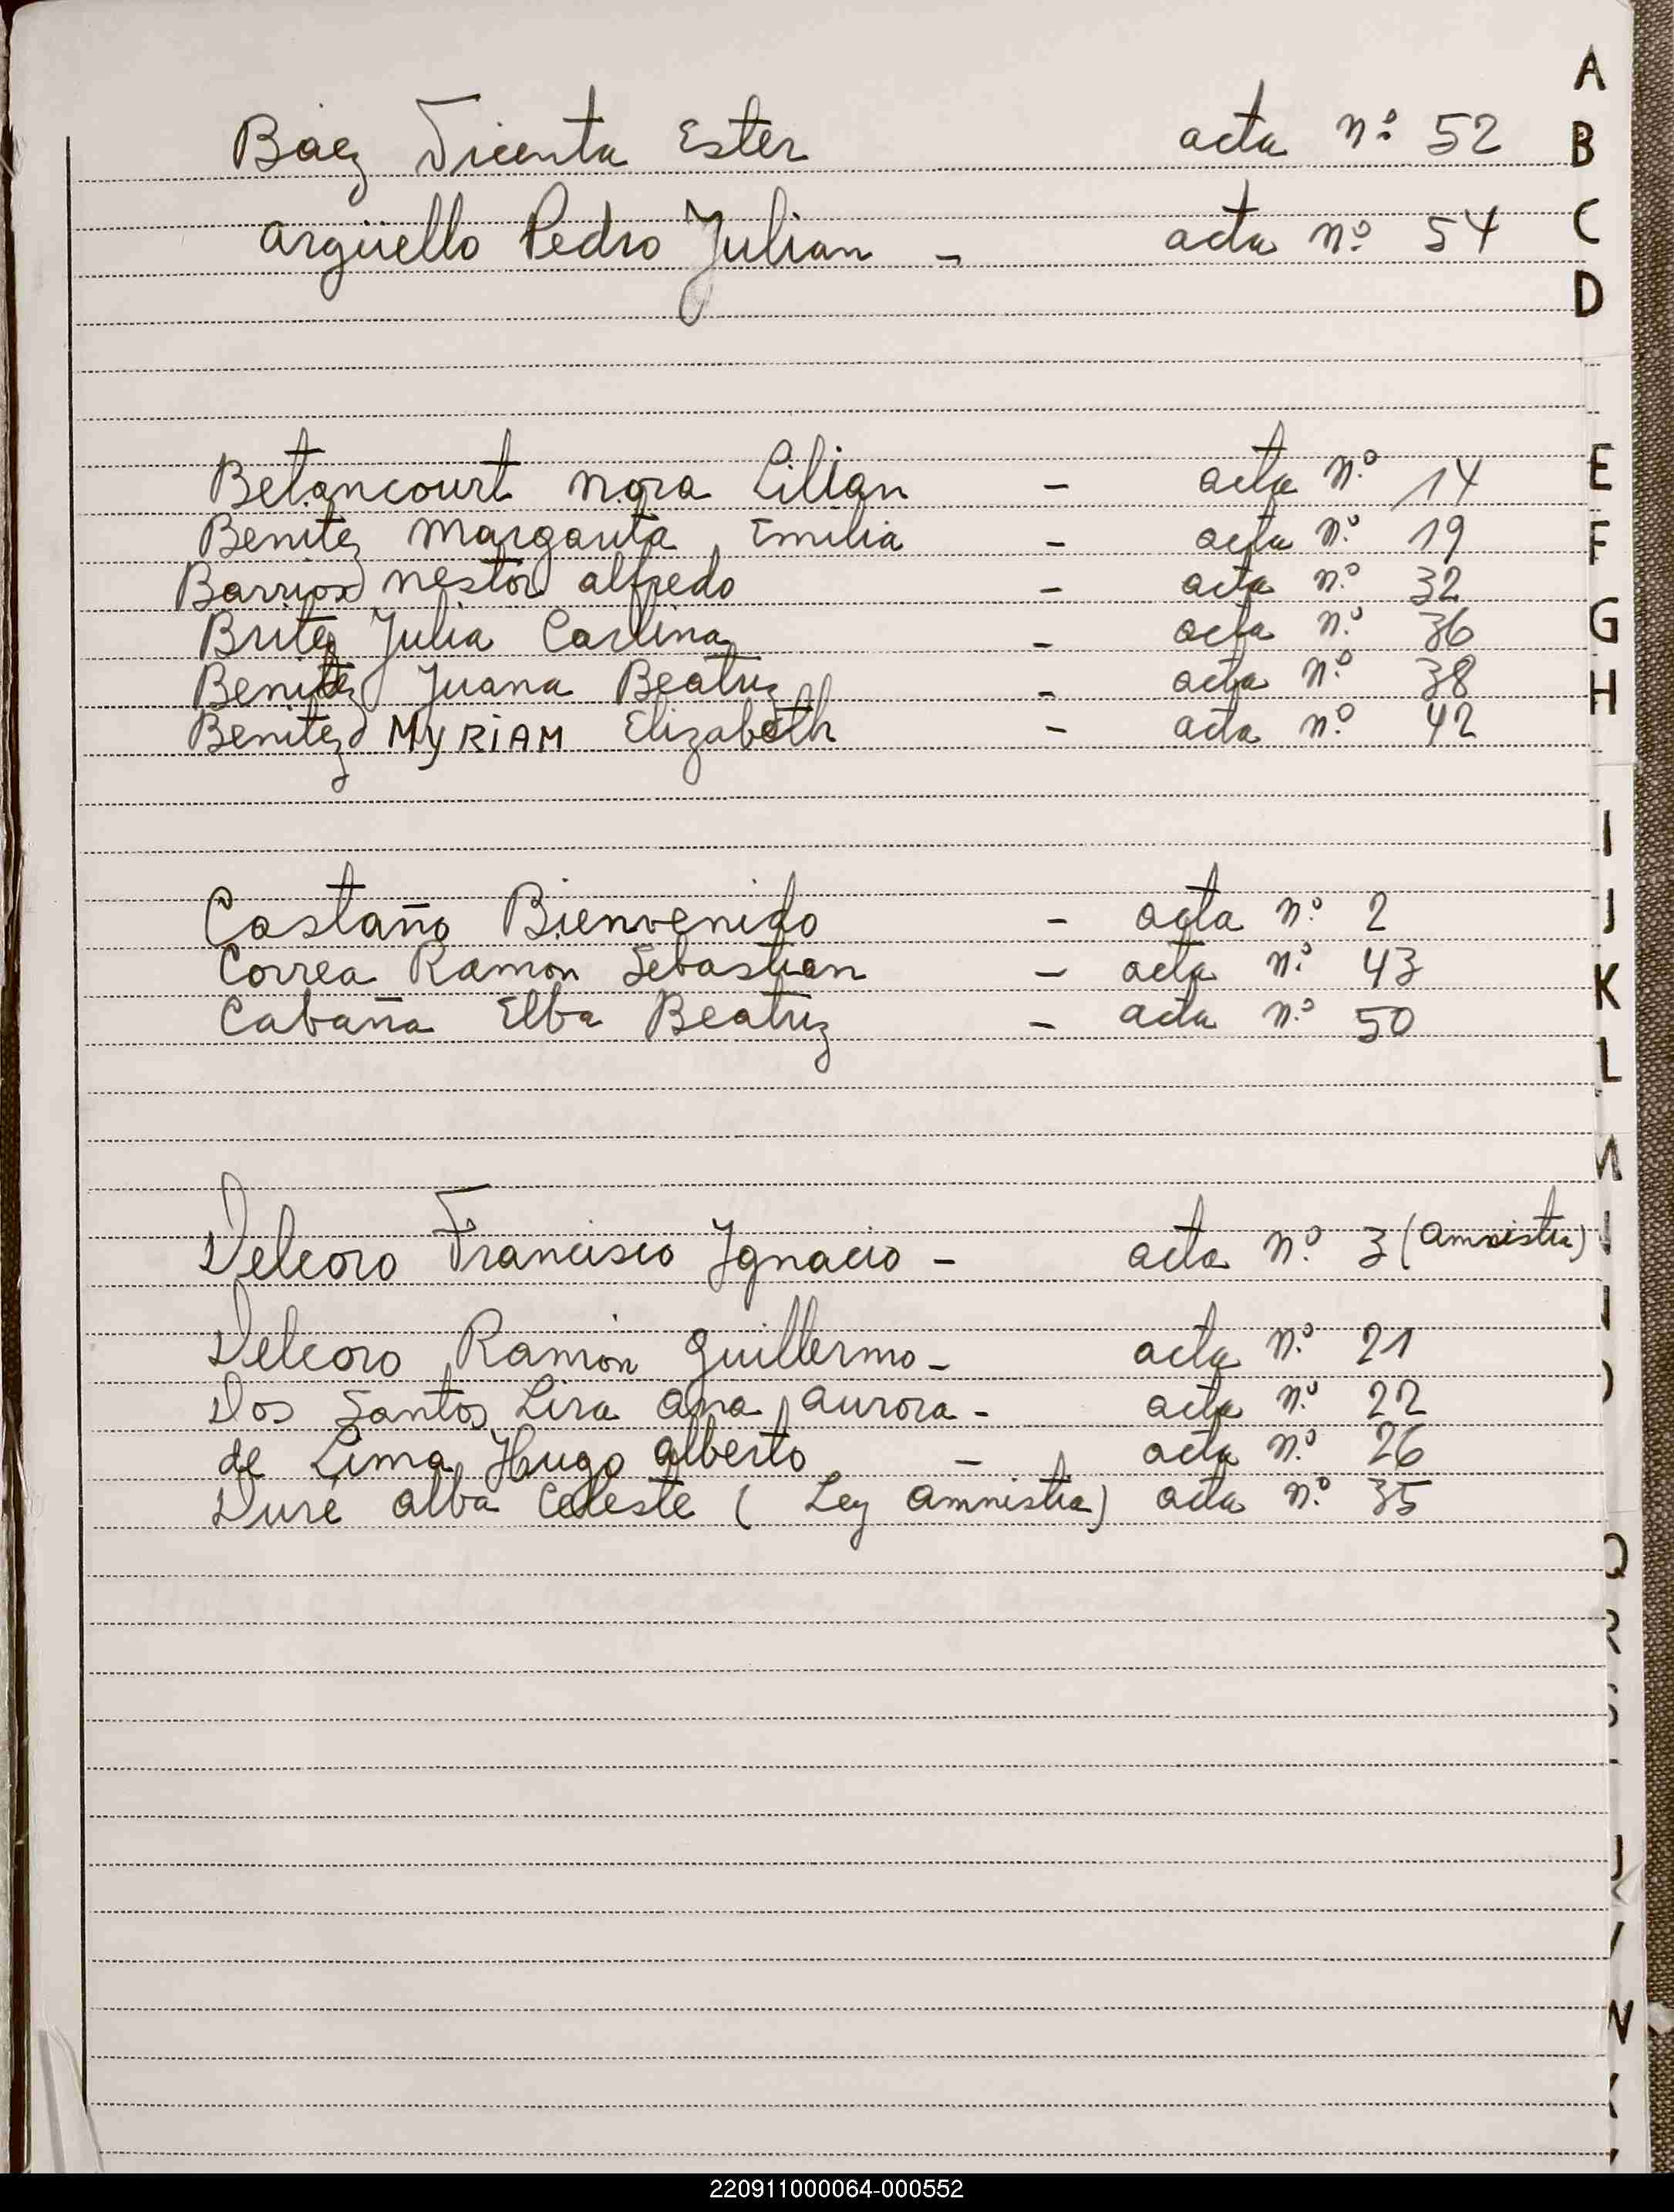 Baez Vicenta Ester acta nº 52
Argüello Pedro Julian - acta nº 54
Betancourt Nora Lilian - acta nº 14
Benitez Margarita Emilia - acta nº 19
Barrios Nestor Alfredo - acta nº 32
Britez Julia Carlina - acta nº 36
Benitez Juana Beatriz - acta nº 38
Benitez MYRIAM Elizabeth - acta nº 42
Castaño Bienvenido - acta nº 2
Correa Ramon Sebastian - acta nº 43
Cabaña Elba Beatriz - acta nº 50
Delcoro Francisco Ignacio - acta nº 3 (Amnistia)
Delcoro Ramón Guillermo - acta nº 21
Dos Santos Lira Ana Aurora - acta nº 22
de Lima Hugo Alberto - acta nº 26
Duré Alba Celeste ( Ley Amnistia) acta nº 35
A
B
C
D
E
F
G
H
I
J
K
L
Q
R
S
220911000064-000552